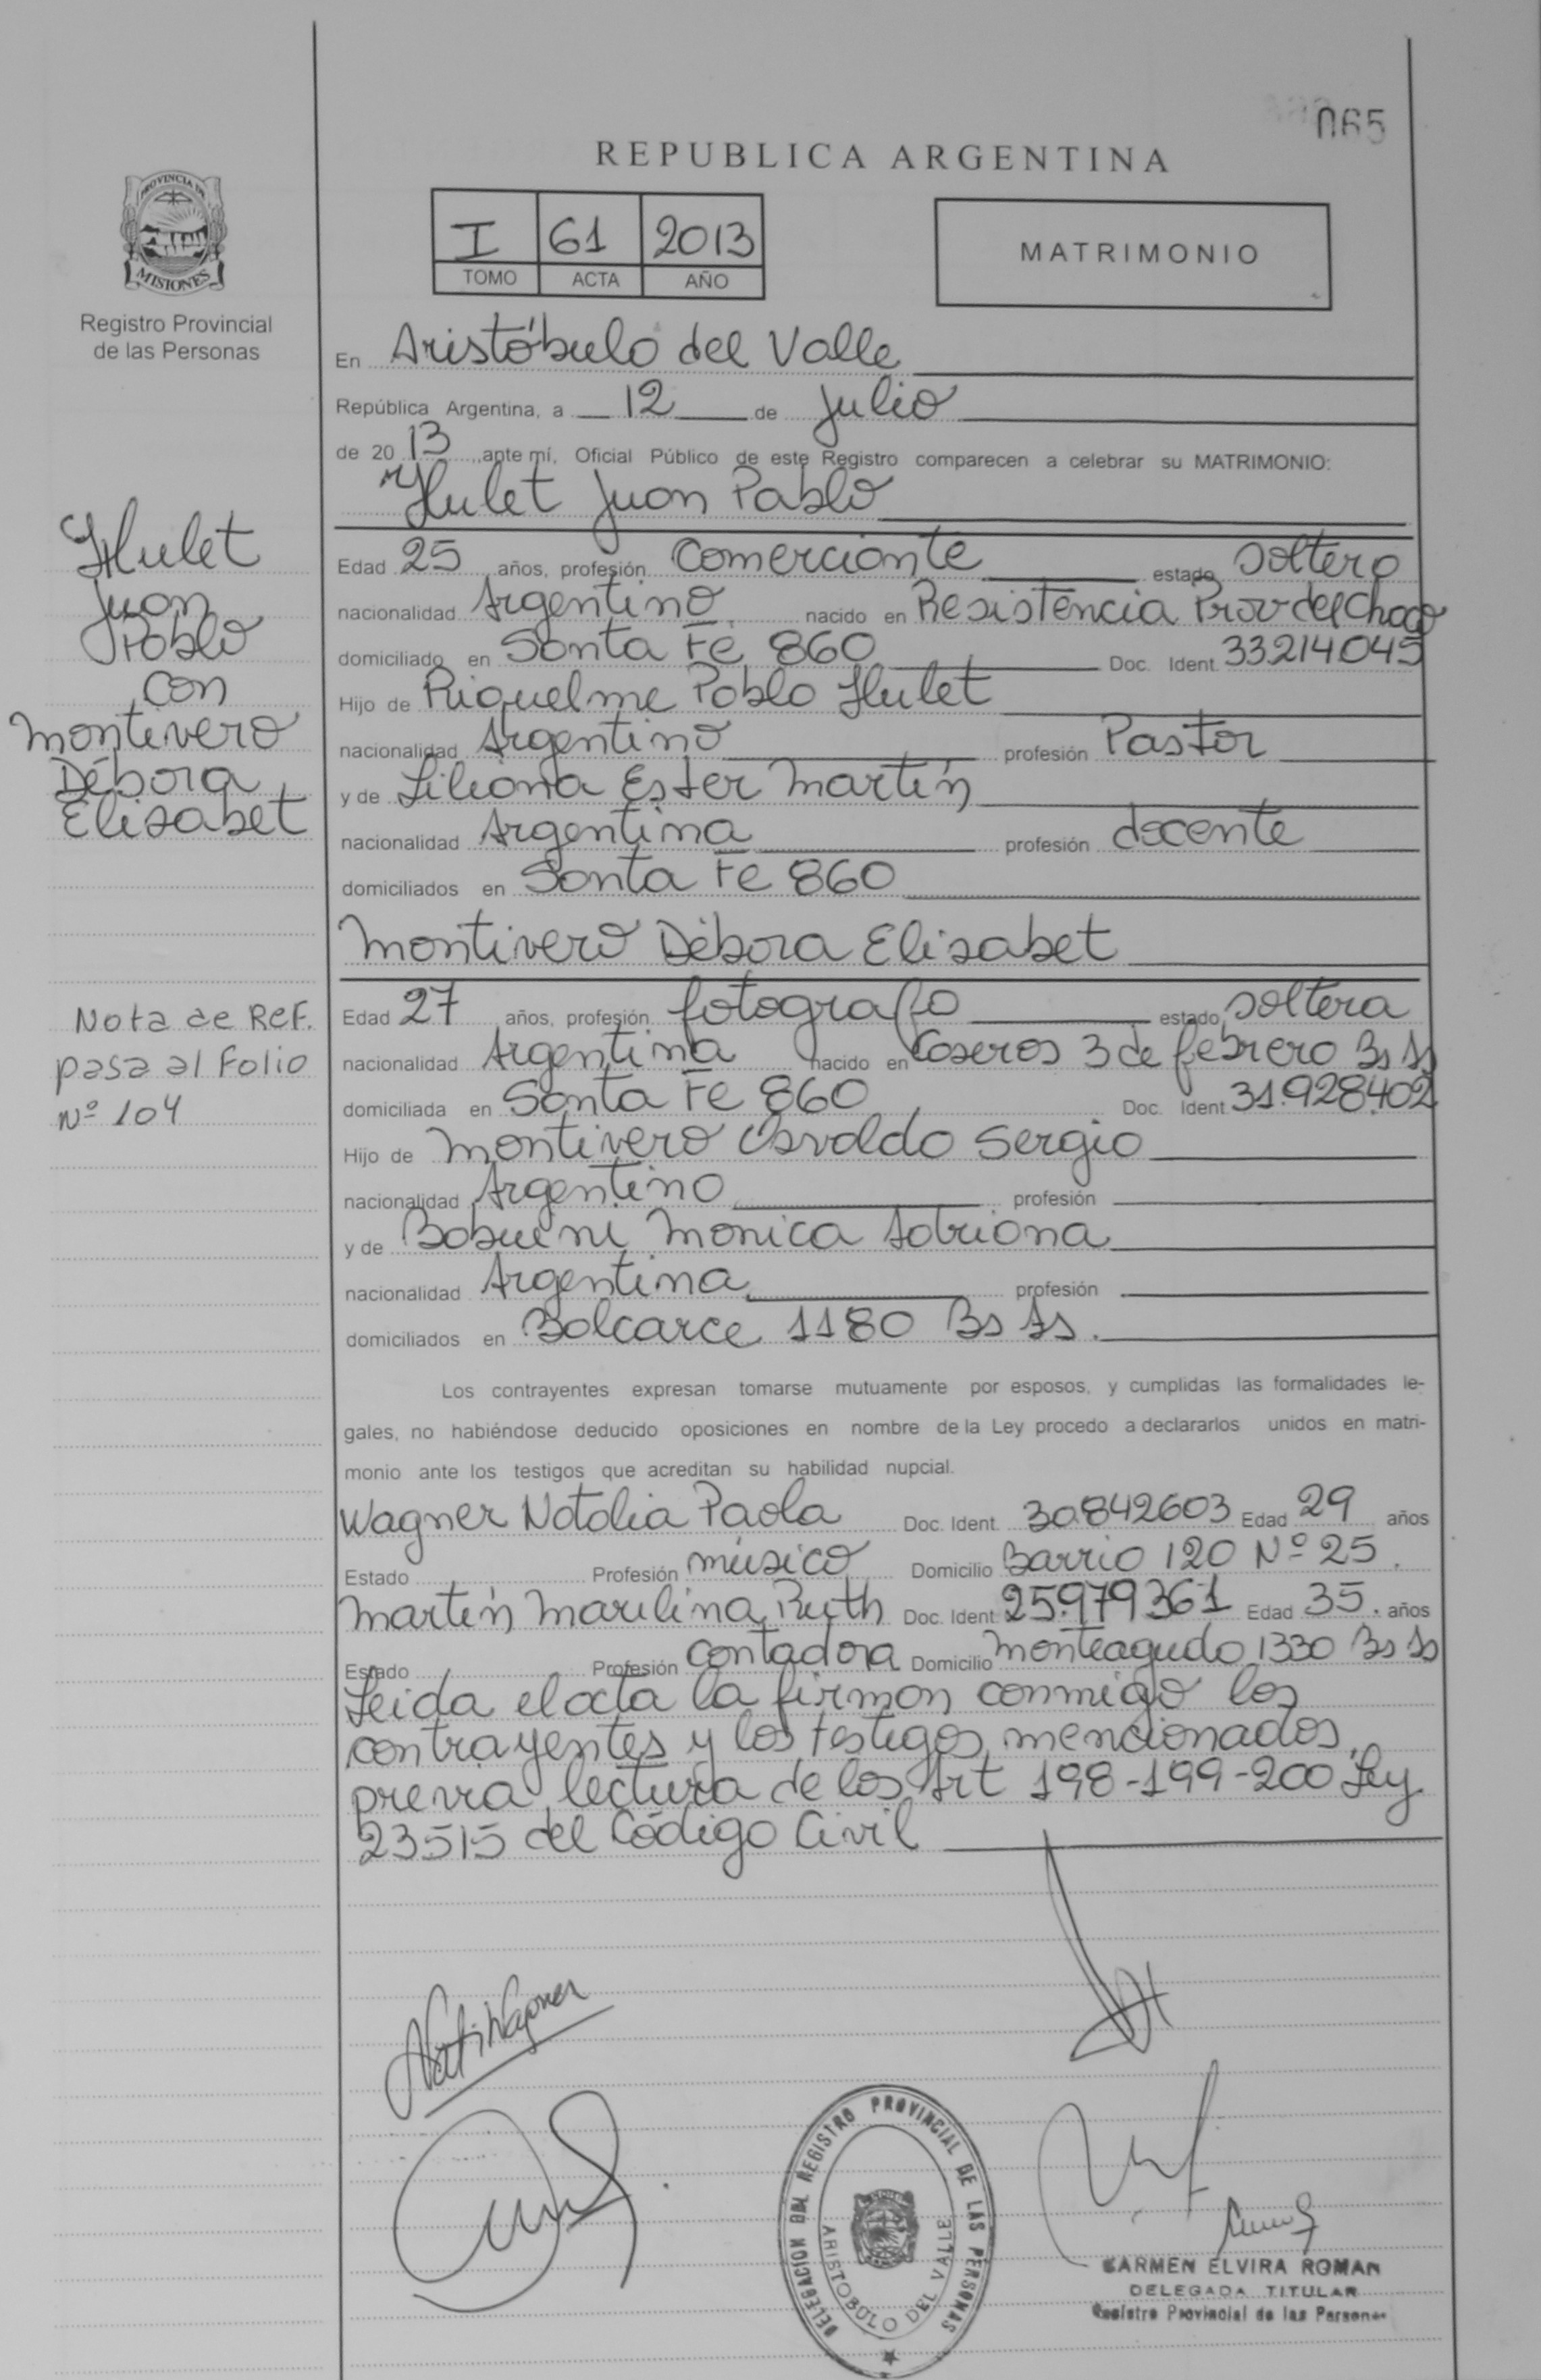 065
REPUBLICA ARGENTINA
PROVINCIA DE
MISIONES
Registro Provincial
de las Personas
I 61 2013
TOMO ACTA AÑO
MATRIMONIO
En Aristóbulo del Valle
República Argentina, a 12 de Julio
de 2013, ante mí, Oficial Público de este Registro comparecen a celebrar su MATRIMONIO:
Hulet Juan Pablo
Hulet
Juan
Pablo
con
Montivero
Débora
Elisabet
Edad 25 años, profesión Comerciante estado soltero
nacionalidad Argentino nacido en Resistencia Prov del Chaco
domiciliado en Santa Fe 860 Doc. Ident. 33214045
Hijo de Riquelme Pablo Hulet
nacionalidad Argentino profesión Pastor
y de Liliana Ester Martín
nacionalidad Argentina profesión docente
domiciliados en Santa Fe 860
Montivero Débora Elisabet
Nota de Ref.
pasa al Folio
Nº 104
Edad 27 años, profesión fotografo estado soltera
nacionalidad Argentina nacido en Caseros 3 de febrero Bs As
domiciliada en Santa Fe 860 Doc. Ident. 31.928.402
Hijo de Montivero Osvaldo Sergio
nacionalidad Argentino profesión
y de Monica Adriana
nacionalidad Argentina profesión
domiciliados en Balcarce 1180 Bs As.
Los contrayentes expresan tomarse mutuamente por esposos, y cumplidas las formalidades le-
gales, no habiéndose deducido oposiciones en nombre de la Ley procedo a declararlos unidos en matri-
monio ante los testigos que acreditan su habilidad nupcial.
Wagner Natalia Paola Doc. Ident. 30842603 Edad 29 años
Estado Profesión músico Domicilio Barrio 120 Nº 25.
Martín Marilina Ruth Doc. Ident. 25.979361 Edad 35. años
Estado Profesión contadora Domicilio Monteagudo 1330 Bs As
Leida el acta la firman conmigo los
contrayentes y los testigos mencionados,
previa lectura de los Art 198-199-200 Ley
23515 del Código Civil
Nati Wagner
DELEGACION DEL REGISTRO PROVINCIAL DE LAS PERSONAS
ARISTOBULO DEL VALLE
CARMEN ELVIRA ROMAN
DELEGADA TITULAR
Registro Provincial de las Personas